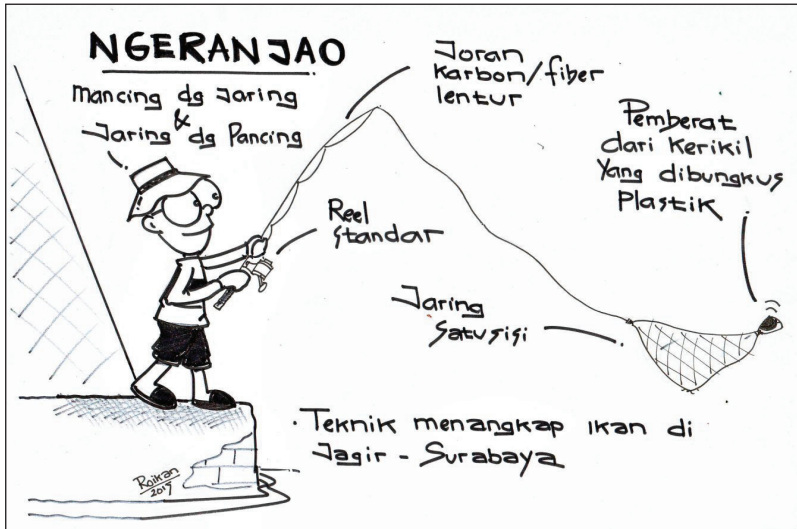 NGERANJAO
Mancing dg Jaring
&
Jaring dg Pancing
Joran
karbon/fiber
lentur
Pemberat
dari kerikil
Yang dibungkus
Plastik
Reel
Standar
Jaring
Satu sisi
· Teknik menangkap ikan di
Jagir - Surabaya
Roikan
2019